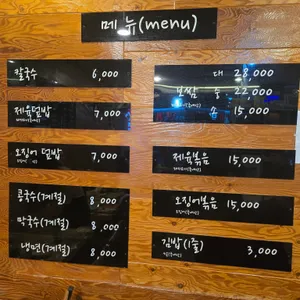 메 뉴(menu)
칼국수 6,000
제육덮밥 7,000
오징어 덮밥 7,000
콩국수(계절) 8,000
막국수(계절) 8,000
냉면(계절) 8,000
대 28,000
보쌈 중 22,000
소 15,000
제육볶음 15,000
오징어볶음 15,000
김밥(1줄) 3,000